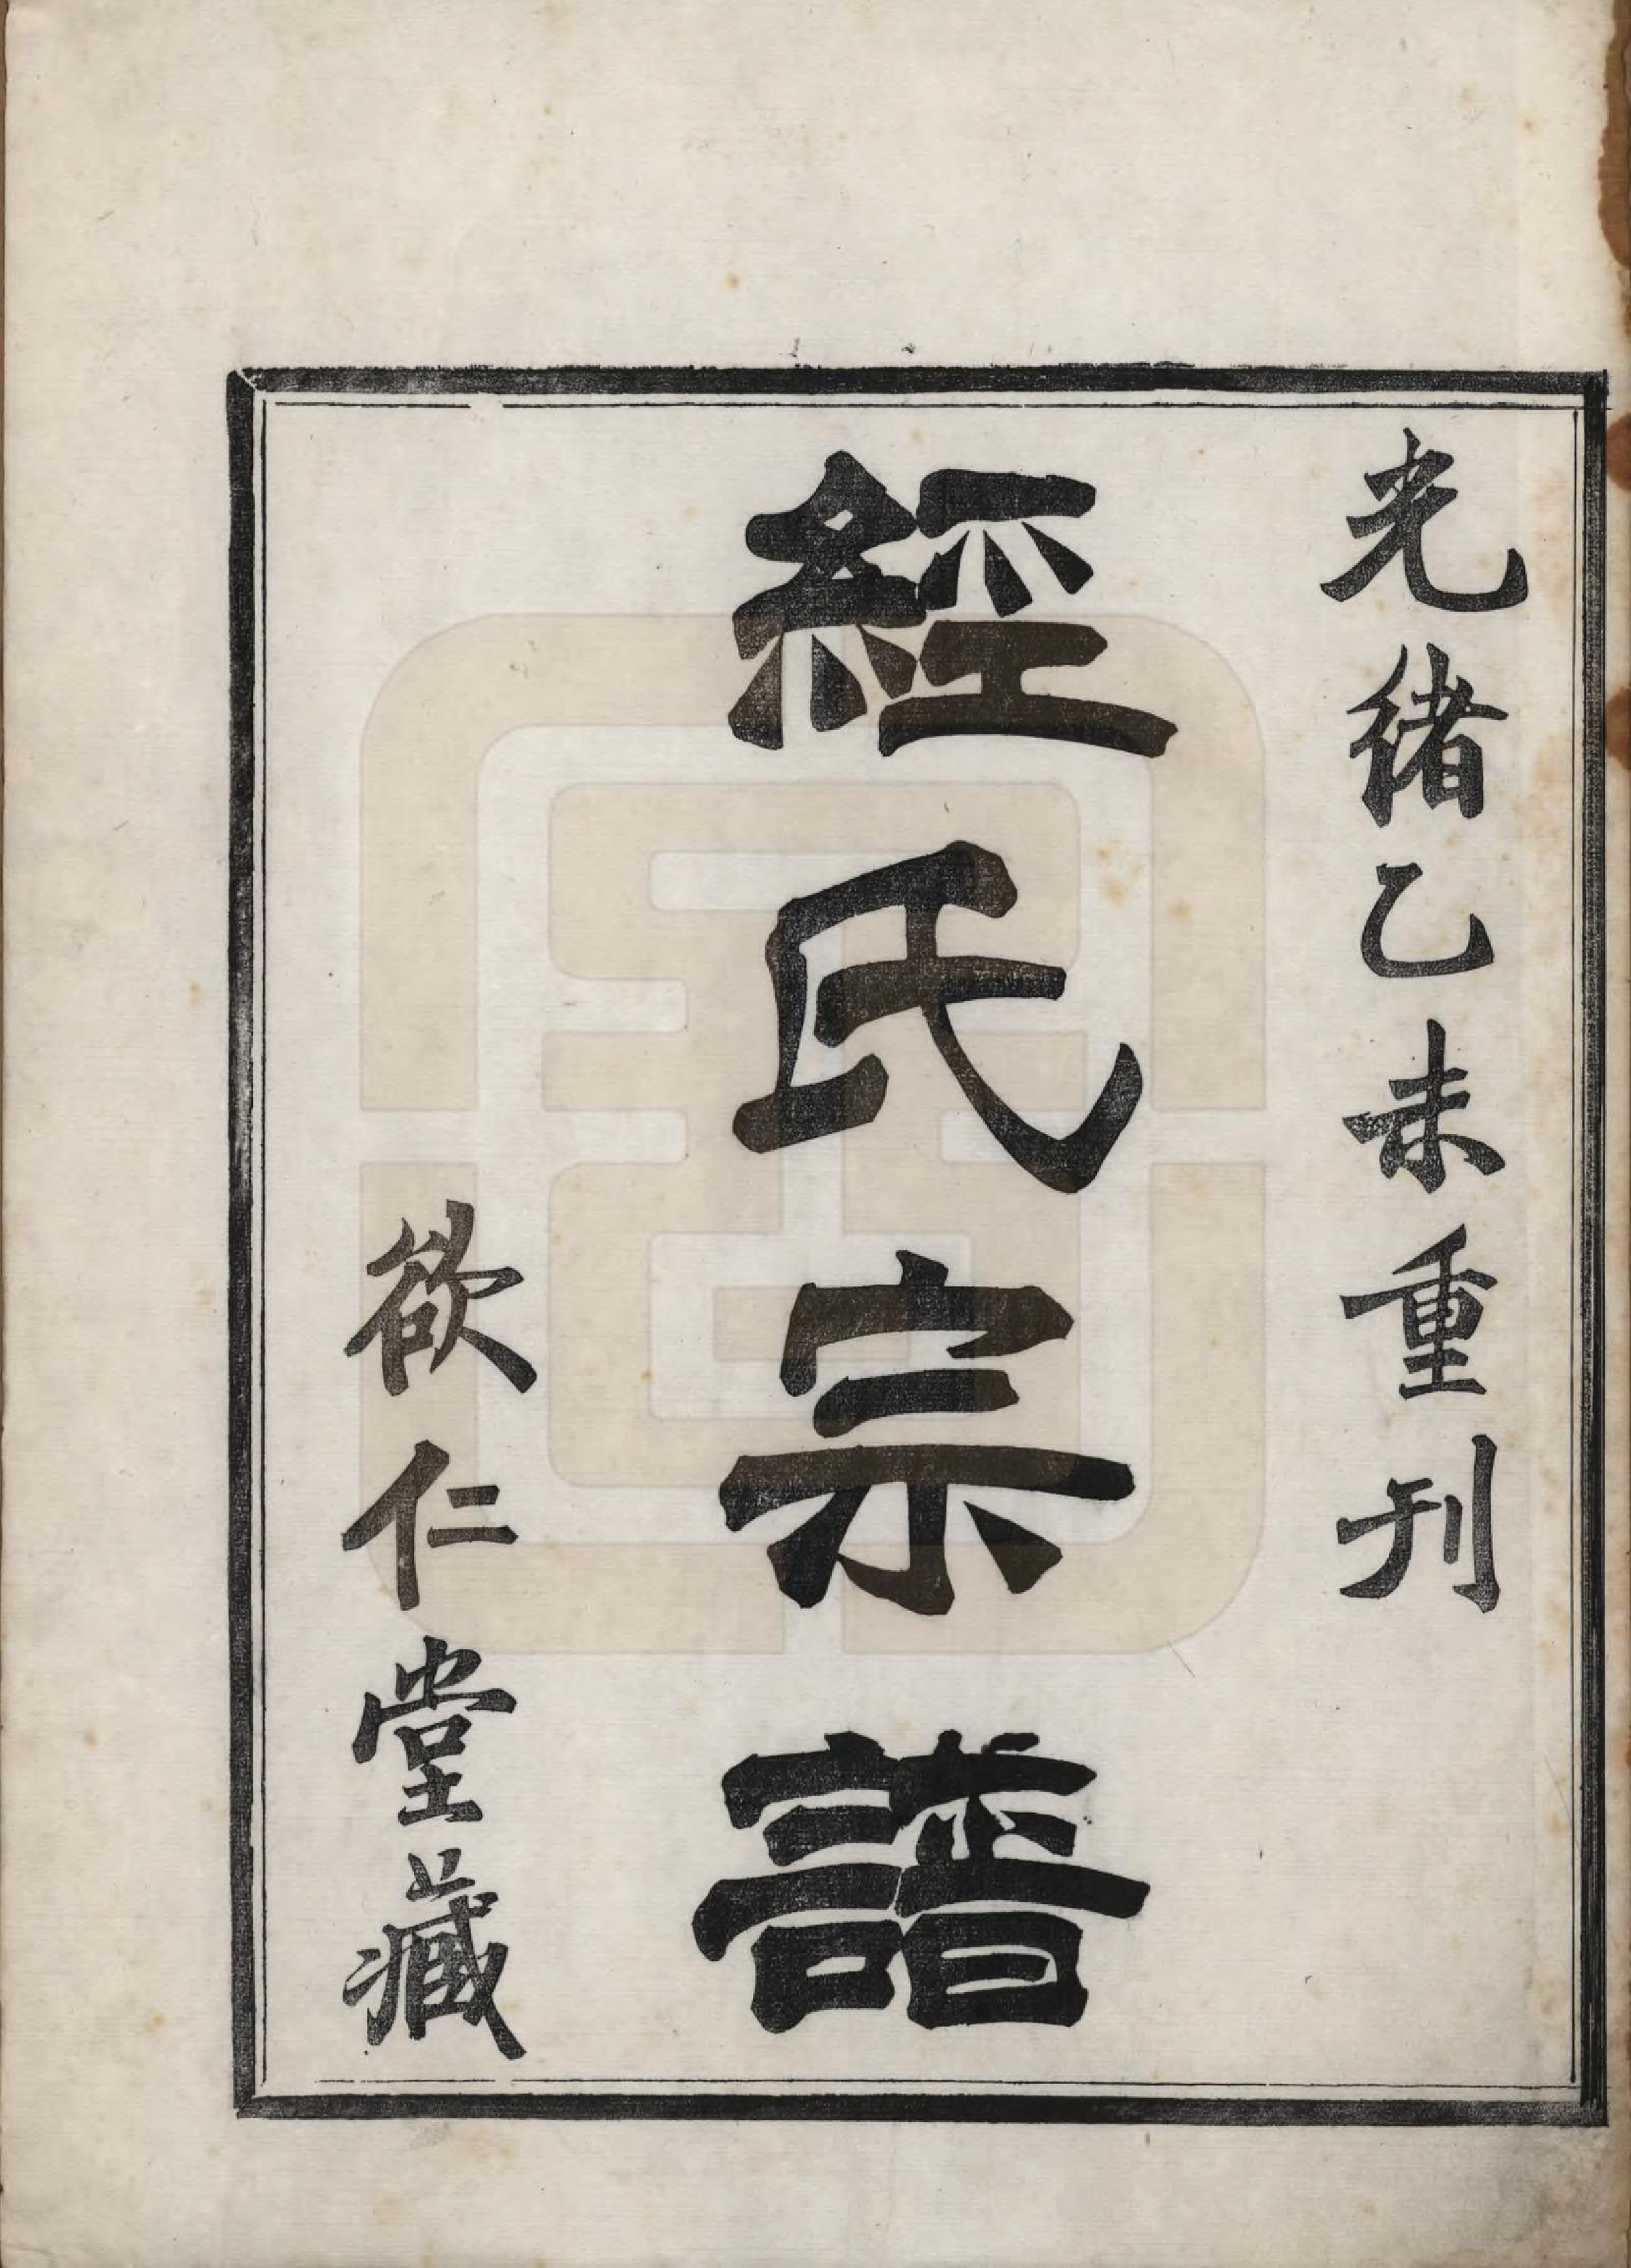 光緒乙未重刊
經氏宗譜
欲仁堂藏